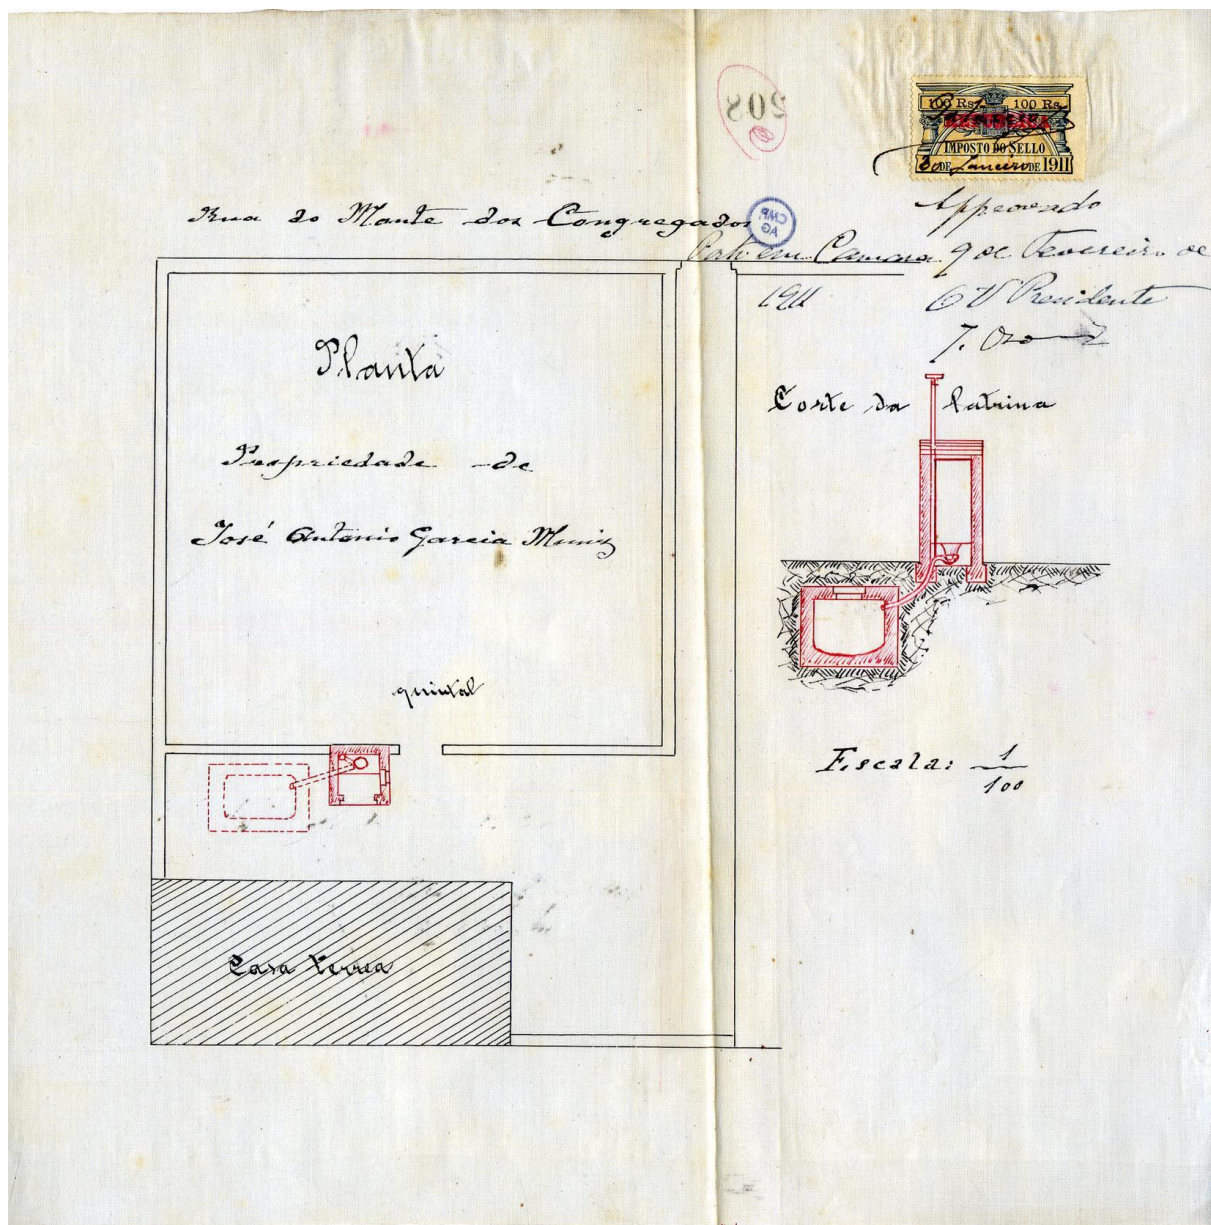 208
100 Rs. 100 Rs.
REPUBLICA
IMPOSTO DO SELLO
30 DE Janeiro DE 1911
CMP
AG
Rua do Monte dos Congregados
Approvado
Porto em Camara 9 de Fevereiro de
1911 O V Presidente
Planta
Corte da latrina
Propriedade de
José Antonio Garcia Muniz
quintal
Escala: 1/100
Casa terrea